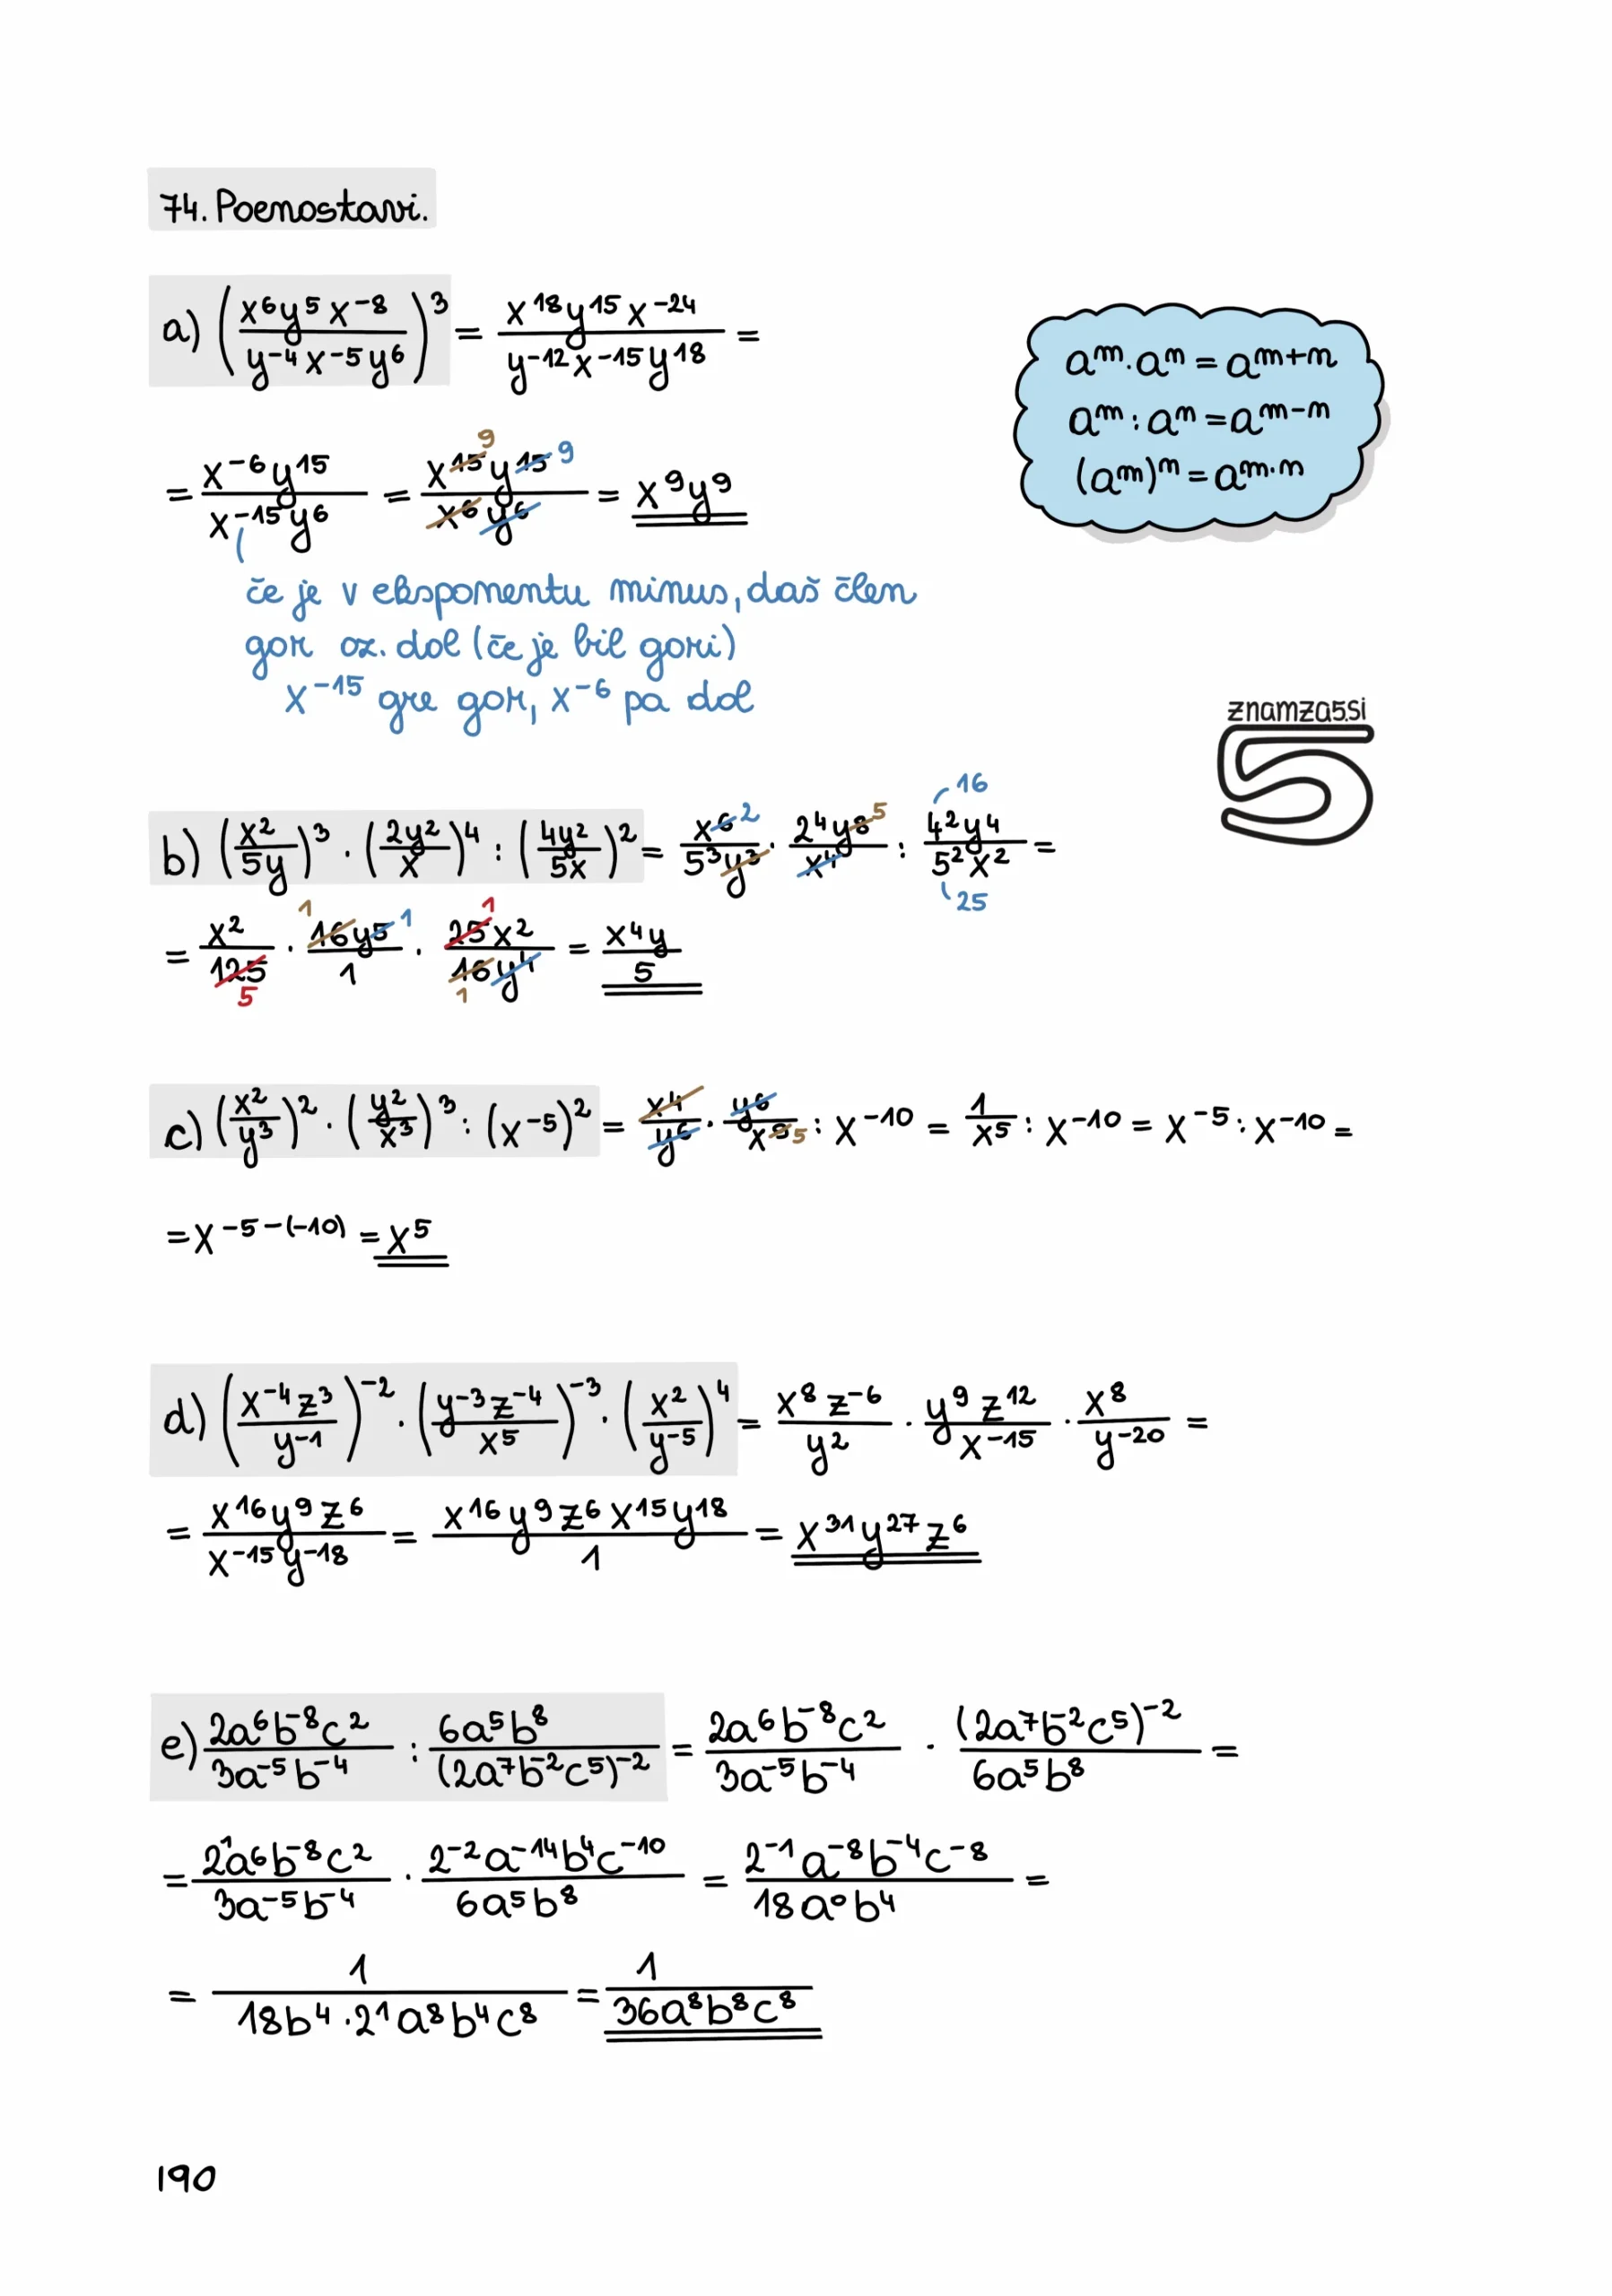 74. Poenostavi.
a) (x⁶y⁵x⁻⁸ / y⁻⁴x⁻⁵y⁶)³ = x¹⁸y¹⁵x⁻²⁴ / y⁻¹²x⁻¹⁵y¹⁸ =
aᵐ · aⁿ = aᵐ⁺ⁿ
aᵐ : aⁿ = aᵐ⁻ⁿ
(aᵐ)ⁿ = aᵐ·ⁿ
= x⁻⁶y¹⁵ / x⁻¹⁵y⁶ = x¹⁵ 9 y¹⁵ 9 / x⁶y⁶ = x⁹y⁹
če je v eksponentu minus, daš člen
gor oz. dol (če je bil gori)
x⁻¹⁵ gre gor, x⁻⁶ pa dol
znamza5.si
5
b) (x² / 5y)³ · (2y² / x)⁴ : (4y² / 5x)² = x⁶ 2 / 5³y³ · 2⁴y⁸ 5 / x⁴ : 4²y⁴ 16 / 5²x² 25 =
= x² / 125 5 · 1 16y⁵ 1 / 1 · 25 1 x² / 16 1 y⁴ = x⁴y / 5
c) (x² / y³)² · (y² / x³)³ : (x⁻⁵)² = x⁴ / y⁶ · y⁶ / x⁹ 5 : x⁻¹⁰ = 1 / x⁵ : x⁻¹⁰ = x⁻⁵ : x⁻¹⁰ =
= x⁻⁵⁻⁽⁻¹⁰⁾ = x⁵
d) (x⁻⁴z³ / y⁻¹)⁻² · (y⁻³z⁻⁴ / x⁵)⁻³ · (x² / y⁻⁵)⁴ = x⁸z⁻⁶ / y² · y⁹z¹² / x⁻¹⁵ · x⁸ / y⁻²⁰ =
= x¹⁶y⁹z⁶ / x⁻¹⁵y⁻¹⁸ = x¹⁶y⁹z⁶x¹⁵y¹⁸ / 1 = x³¹y²⁷z⁶
e) 2a⁶b⁻⁸c² / 3a⁻⁵b⁻⁴ : 6a⁵b⁸ / (2a⁷b⁻²c⁵)⁻² = 2a⁶b⁻⁸c² / 3a⁻⁵b⁻⁴ · (2a⁷b⁻²c⁵)⁻² / 6a⁵b⁸ =
= 2¹a⁶b⁻⁸c² / 3a⁻⁵b⁻⁴ · 2⁻²a⁻¹⁴b⁴c⁻¹⁰ / 6a⁵b⁸ = 2⁻¹a⁻⁸b⁻⁴c⁻⁸ / 18a⁰b⁴ =
= 1 / 18b⁴ · 2¹a⁸b⁴c⁸ = 1 / 36a⁸b⁸c⁸
190